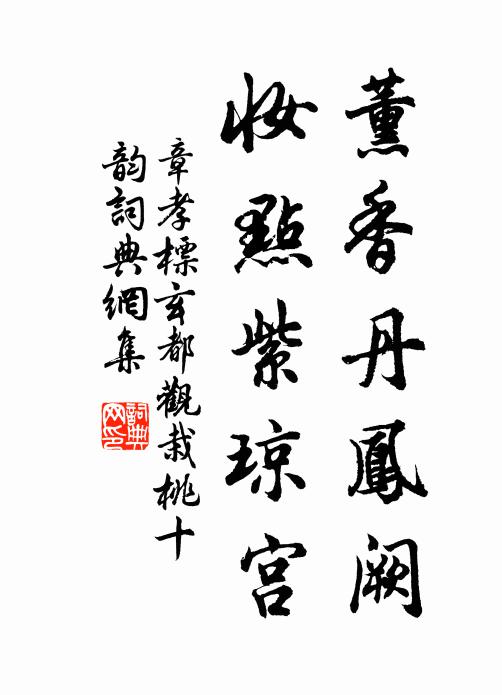 薰香丹鳳闕
妝點紫琼宫
章孝標玄都觀栽桃十
韵詞典網集
詞典网印